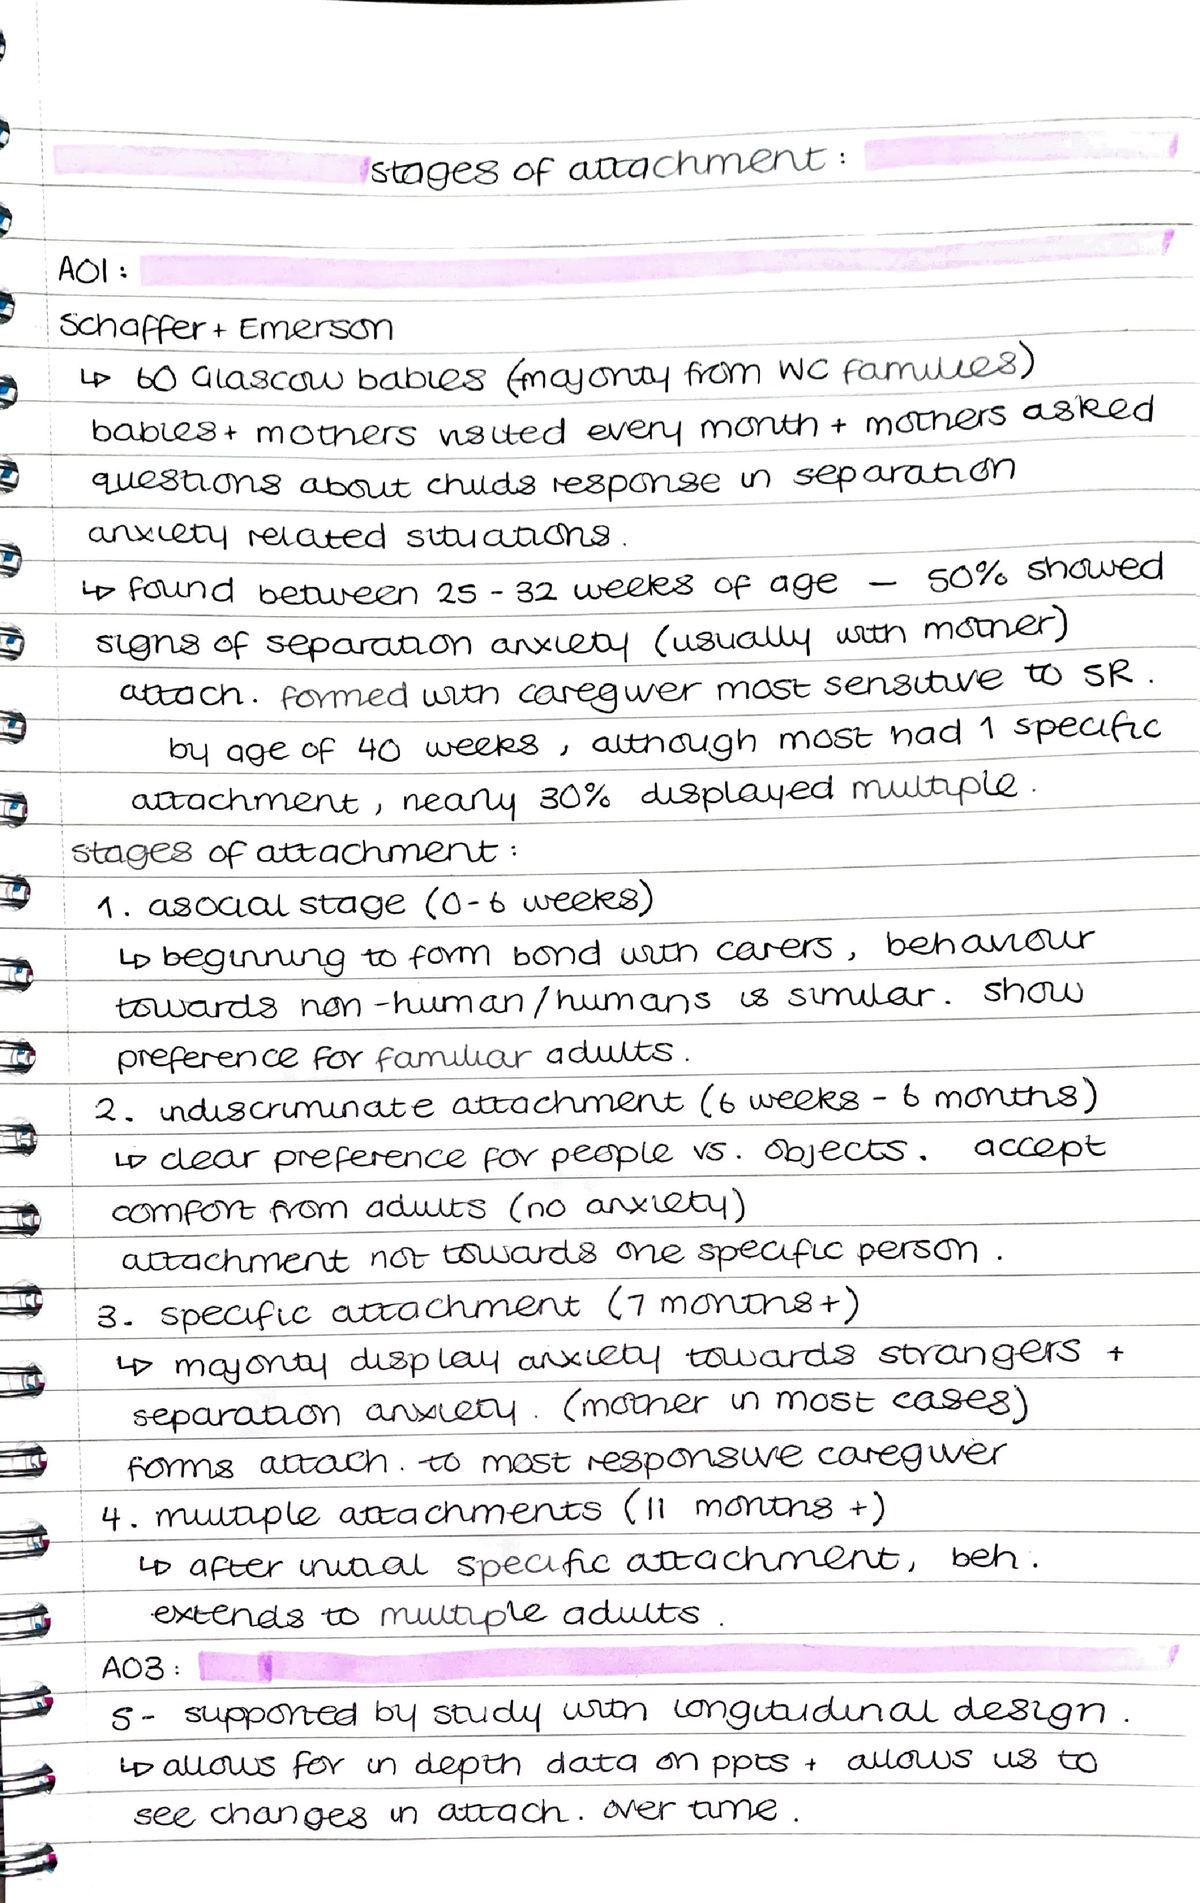 stages of attachment :
AO1 :
Schaffer + Emerson
↳ 60 Glascow babies (majority from WC families)
babies + mothers visited every month + mothers asked
questions about childs response in separation
anxiety related situations.
↳ found between 25 - 32 weeks of age — 50% showed
signs of separation anxiety (usually with mother)
attach. formed with caregiver most sensitive to SR.
by age of 40 weeks, although most had 1 specific
attachment, nearly 30% displayed multiple.
stages of attachment :
1. asocial stage (0-6 weeks)
↳ beginning to form bond with carers, behaviour
towards non-human/humans is similar. show
preference for familiar adults.
2. indiscriminate attachment (6 weeks - 6 months)
↳ clear preference for people vs. objects. accept
comfort from adults (no anxiety)
attachment not towards one specific person.
3. specific attachment (7 months +)
↳ majority display anxiety towards strangers +
separation anxiety. (mother in most cases)
forms attach. to most responsive caregiver
4. multiple attachments (11 months +)
↳ after initial specific attachment, beh.
extends to multiple adults.
AO3 :
S - supported by study with longitudinal design.
↳ allows for in depth data on ppts + allows us to
see changes in attach. over time.